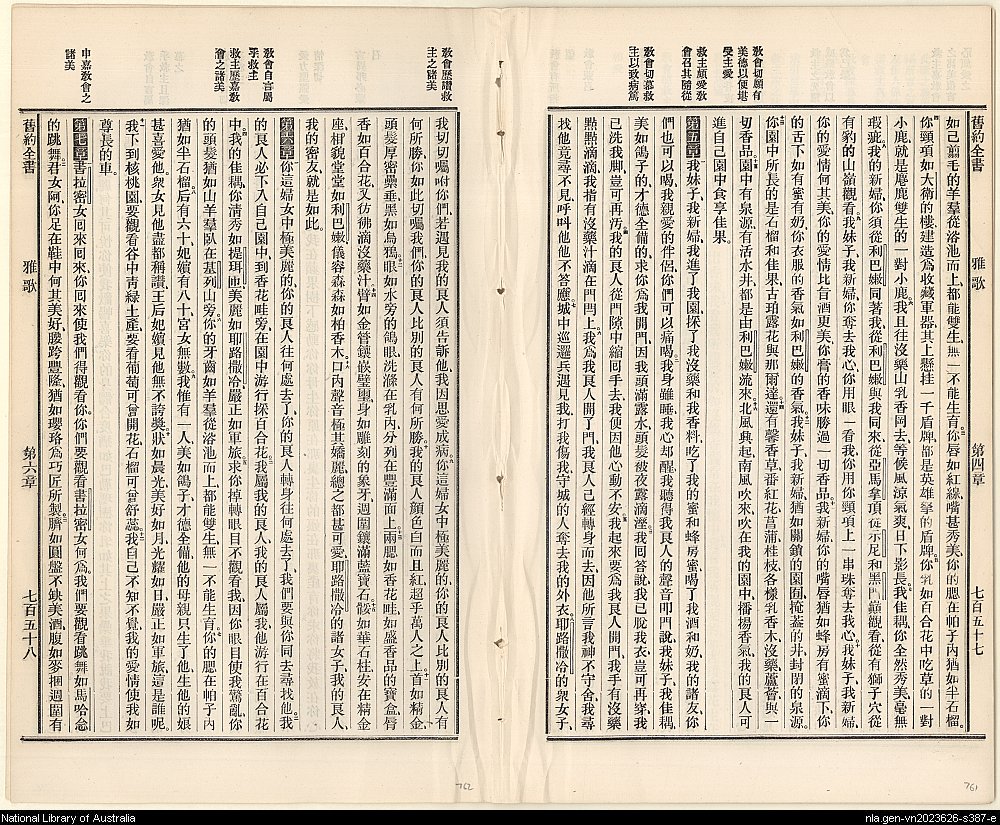 舊約全書 雅歌 第四章 七百五十七
教會切願有
美德以便堪
受主愛
救主顧愛教
會召其隨從
教會切慕救
主以致病篤
如已剪毛的羊羣從浴池而上都能雙生無一不能生育你唇如紅線嘴甚秀美你的腮在帕子內猶如半石榴
你頸項如大衛的樓建造爲收藏軍器其上懸挂一千盾牌都是英雄拏的盾牌你乳如百合花中吃草的一對
小鹿就是麀鹿雙生的一對小鹿我且往沒藥山乳香岡去等候風涼氣爽日下影長我佳耦你全然秀美毫無
瑕疵我的新婦你須從利巴嫩同著我從利巴嫩與我同來從亞馬拿頂從示尼和黑門巔觀看從有獅子穴從
有豹的山嶺觀看我妹子我新婦你奪去我心你用眼一看我你用你頸項上一串珠奪去我心我妹子我新婦
你的愛情何其美你的愛情比旨酒更美你膏的香味勝過一切香品我新婦你的嘴唇猶如蜂房有蜜滴下你
的舌下如有蜜有奶你衣服的香氣如利巴嫩的香氣我妹子我新婦猶如關鎖的園囿掩葢的井封閉的泉源
你園中所長的是石榴和佳果古珀露花與那爾達還有馨香草番紅花菖蒲桂枝各樣乳香木沒藥蘆薈與一
切香品園中有泉源有活水井都是由利巴嫩流來北風興起南風吹來吹在我的園中播揚香氣我的良人可
進自己園中食享佳果
第五章我妹子我新婦我進了我園採了我沒藥和我香料吃了我的蜜和蜂房蜜喝了我酒和奶我的諸友你
們也可以吃可以喝我親愛的伴侶你們可以痛喝我身雖睡我心却醒我聽得我良人的聲音叩門說我妹子我佳耦
美如鴿子的才德全備的求你爲我開門因我頭滿露水頭髮被夜露滴溼我回答說我已脫我衣豈可再穿我
已洗我脚豈可再汚我的良人從門隙中縮回手去我便因他心動不安我起來要爲我良人開門我手有沒藥
點點滴滴我指有沒藥汁滴在門閂上我爲我良人開了門我良人已經轉身而去因他所言我神不守舍我尋
找他竟尋不見呼叫他他不答應城中巡邏兵遇見我打我傷我守城的人奪去我的外衣耶路撒冷的衆女子
教會歷讚救
主之諸美
教會自言屬
乎救主
救主歷嘉教
會之諸美
申嘉教會之
諸美
我切切囑咐你們若遇見我的良人須告訴他我因思愛成病你這婦女中極美麗的你的良人比別的良人有
何所勝你如此切囑我們你的良人比別的良人有何所勝我的良人顏色白而且紅超乎萬人之上首如精金
頭髮厚密纍垂黑如烏鴉眼如水旁的鴿眼洗滌在乳內分列在豐滿而上兩腮如香花畦如盛香品的寶盒唇
香如百合花又彷彿滴沒藥汁臂如金管鑲嵌璧璽身如雕刻的象牙週圍鑲滿藍寶石骽如華石柱安在精金
座相貌堂堂如利巴嫩儀容森森如柏香木口內聲音極其嬌麗總之都甚可愛耶路撒冷的諸女子我的良人
我的密友就是如此
第六章你這婦女中極美麗的你的良人往何處去了你的良人轉身往何處去了我們要與你同去尋找他我
的良人必下入自己園中到香花畦旁在園中游行採百合花我屬我的良人我的良人屬我他游行在百合花
中我的佳耦你清秀如提珥啚美麗如耶路撒冷嚴正如軍旅求你掉轉眼目不觀看我因你眼目使我驚亂你
的頭髮猶如山羊羣臥在基列山旁你的牙齒如羊羣從浴池而上都能雙生無一不能生育你的腮在帕子內
猶如半石榴后有六十妃嬪有八十宮女無數我惟有一人美如鴿子才德全備他的母親只生了他生他的娘
甚喜愛他衆女見他盡都稱讚王后妃嬪見他無不誇獎狀如晨光美好如月光耀如日嚴正如軍旅這是誰呢
我下到核桃園要觀看谷中靑綠土產要看葡萄可曾開花石榴可曾舒蕊我自己不知不覺我的愛情使我如
尊長的車
第七章書拉密女回來回來你回來使我們得觀看你你們要觀看書拉密女何爲我們要觀看跳舞如馬哈念
的跳舞君女阿你足在鞋中何其美好腰跨豐隆猶如瓔珞爲巧匠所製臍如圓盤不缺美酒腹如麥捆週圍有
舊約全書 雅歌 第六章 七百五十八
762
761
National Library of Australia
nla.gen-vn2023626-s387-e